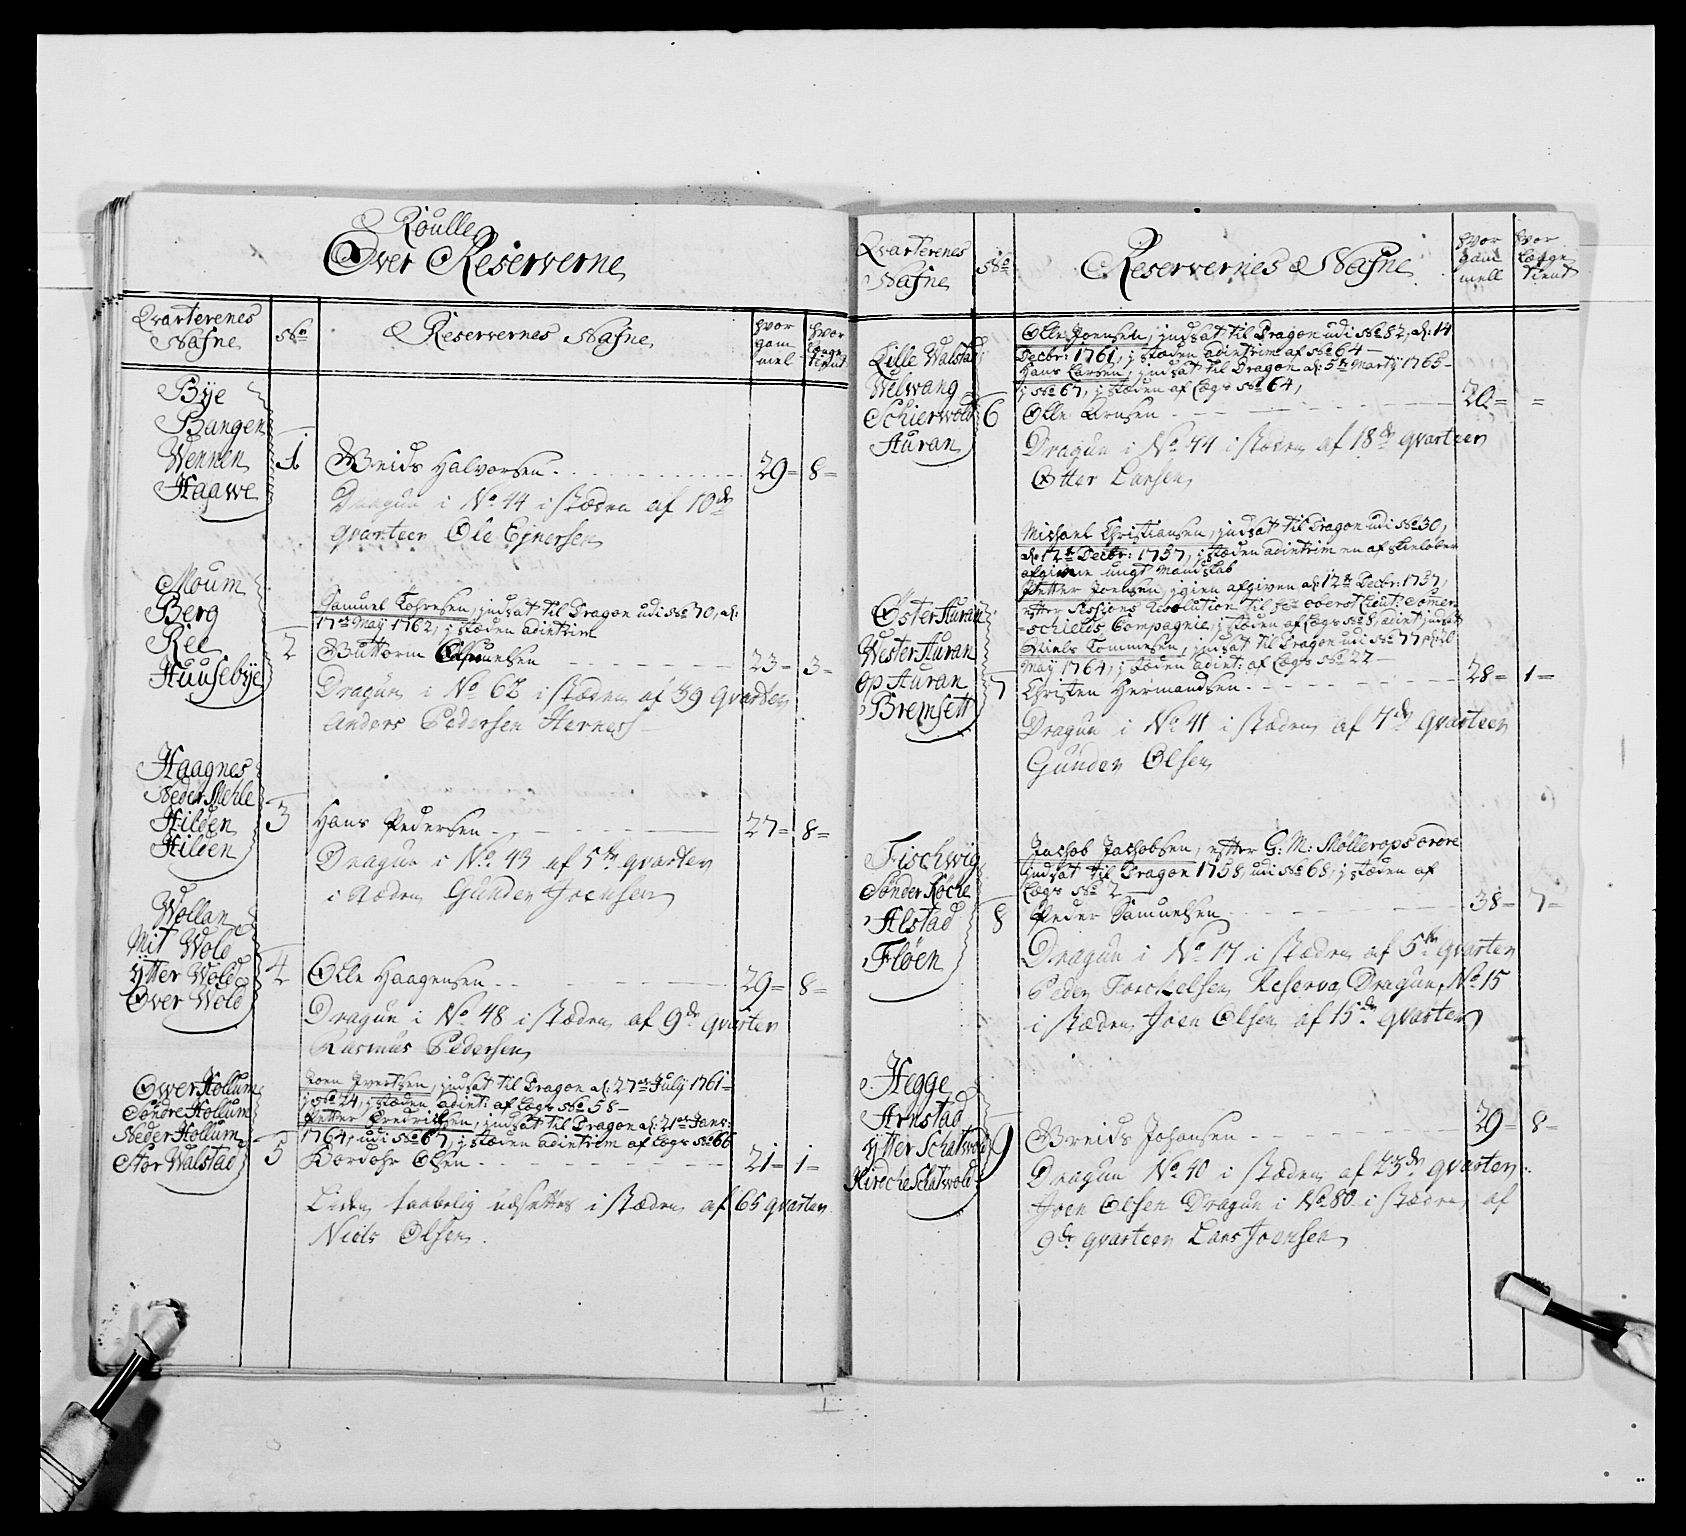 Roulle
Over Reserverne
Qvarterenes
Nafne
No
Reservernes Nafne
hvor
gam
mel
hvor
længe
tient
Bye
Bangen
Wennen
Haawe
1
Breids Halvorsen
29 = 8 =
Dragun i No 44 i stæden af 10de
qvarteer Ole Ejnersen
Moum
Berg
Ree
Huusebye
2
Samuel Tohresen, indsat til Dragon udi No 70, d:
17de May 1762, i stæden adintrim
Guttorm Olsen
23 = 3 =
Dragun i No 62 i stæden af 39 qvarteer
Anders Pedersen Hernes
Haagnes
Neder Mehle
Hilden
Hilden
3
Hans Pedersen
27 = 8 =
Dragun i No 43 af 5te qvarteer
i stæden Gunder Joensen
Wollan
Mit Wold
Ytter Wold
Over Wold
4
Olle Haagensen
29 = 8 =
Dragun i No 48 i stæden af 9de qvarteer
Rasmus Pedersen
Ower Hollum
Søndre Hollum
Neder Hollum
Stor Walstad
5
Joen Ivertsen, indsat til Dragon d: 27de July 1761
i No 24, i stæden adint: af Lægs No 58
Petter Fredrichsen, indsat til Dragon d: 21de Janv:
1764, udi No 67, i stæden adintrim af Lægs No 66
Bordohr Olsen
21 = 1 =
Liden udsettes i stæden af 65 qvarteer
Niels Olsen
Qvarterenes
Nafne
No
Reservernes Nafne
hvor
gam
mell
hvor
længe
tient
Lille Walstad
Welwang
Schierwold
Auran
6
Olle Joensen, indsat til Dragon udi No 82, d: 14
Decbr: 1761, i stæden adintrim af No 64
Hans Larsen, indsat til Dragon d: 5te Marty 1765
i No 67, i stæden af Lægs No 64,
Olle Arnsen
20 = =
Dragun i No 44 i stæden af 18de qvarteer
Otter Larsen
Øster Auran
Wester Auran
Op Auran
Bremsett
7
Michael Christiansen, indsat til Dragon udi No 30,
d: 12te Decbr: 1757, i stæden adintrim en af Skieløber
afgivne ungt Mandskab
Petter Joensen, igien afgiven d: 12te Decbr: 1757,
efter Sessions Resolution til Oberst Lieut:
Compagnie, i stæden af Lægs No 8, adint: indsat
Niels Tommesen, indsat til Dragon udi No 77
May 1764, i stæden adint: af Lægs No 22
Christen Hermandsen
28 = 1 =
Dragun i No 41 i stæden af 4de qvarteer
Gunder Olsen
Fischwig
Sønder Koche
Alstad
Fløen
8
Jachob Jachobsen, efter G: M: Møllerops ordre
indsat til Dragon 1758, udi No 68, i stæden af
Lægs No 2
Peder Samuelsen
38 = 7 =
Dragun i No 17 i stæden af 5te qvarteer
Peder Torckelsen Reserva Dragun No 15
i stæden Joen Olsen af 15de qvarteer
Hegge
Arnstad
Ytter Schatwold
Kirche Schatwold
9
Breids Johansen
29 = 8 =
Dragun No 40 i stæden af 23de qvarteer
Joen Olsen Dragun i No 80 i stæden af
9de qvarteer Lars Joensen